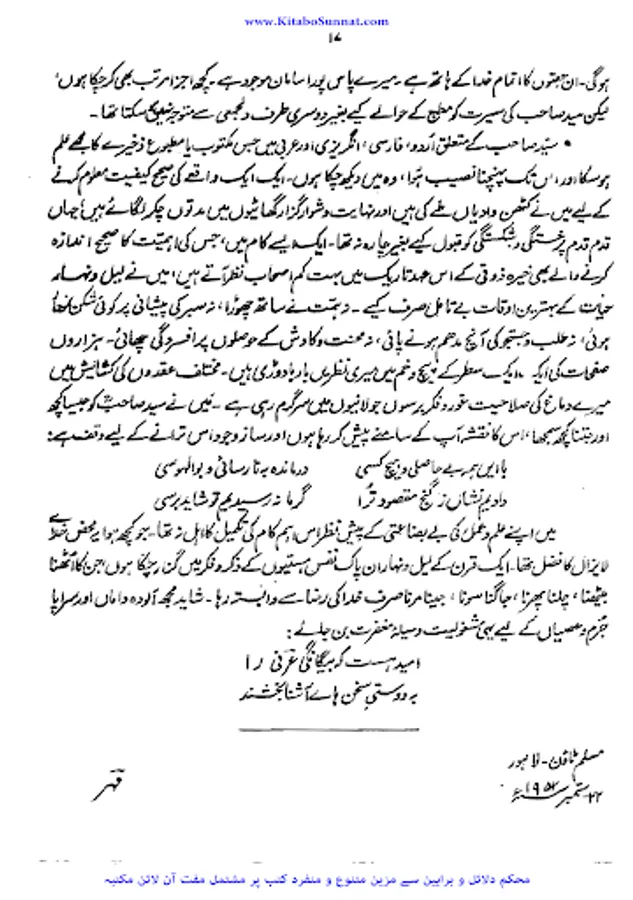 www.KitaboSunnat.com
۱۷
ہوگی۔ ان جہتوں کا اتمام خدا کے ہاتھ ہے۔ میرے پاس پورا سامان موجود ہے۔ کچھ اجزا مرتب بھی کرچکا ہوں،
لیکن سید صاحب کی سیرت کو مطبع کے حوالے کیے بغیر دوسری طرف دلجمعی سے متوجہ نہیں ہوسکتا تھا۔
• سیّد صاحب کے متعلق اُردو، فارسی، انگریزی اور عربی میں جس مکتوب یا مطبوع ذخیرے کا مجھے علم
ہوسکا اور اس تک پہنچنا نصیب ہُوا، وہ میں دیکھ چکا ہوں۔ ایک ایک واقعے کی صحیح کیفیت معلوم کرنے
کے لیے میں نے کٹھن وادیاں طے کی ہیں اور نہایت دشوار گزار گھاٹیوں میں مدتوں چکر لگائے ہیں، جہاں
قدم قدم پر خستگی و شکستگی کو قبول کیے بغیر چارہ نہ تھا۔ ایک ایسے کام میں، جس کی اہمیت کا صحیح اندازہ
کرنے والے بھی خیرہ ذوقی کے اس عہد تاریک میں بہت کم اصحاب نظر آتے ہیں، میں نے لیل و نہار
حیات کے بہترین اوقات بے تامل صرف کیے۔ نہ ہمت نے ساتھ چھوڑا، نہ صبر کی پیشانی پر کوئی شکن نمایاں
ہوئی، نہ طلب و جستجو کی آنچ مدھم ہونے پائی، نہ محنت و کاوش کے حوصلوں پر افسردگی چھائی۔ ہزاروں
صفحات کی ایک ایک سطر کے پیچ و خم میں میری نظریں بارہا دوڑی ہیں۔ مختلف عقدوں کی کشائش میں
میرے دماغ کی صلاحیت غور و فکر برسوں جولانیوں میں سرگرم رہی ہے۔ میں نے سید صاحبؒ کو جیسا کچھ
اور جتنا کچھ سمجھا، اس کا نقشہ آپ کے سامنے پیش کر رہا ہوں اور ساز وجود اس ترانے کے لیے وقف ہے:
با ایں ہمہ بے حاصلی و ہیچ کسی درماندہ بہ نارسائی و بوالہوسی
دادیم نشاں ز گنج مقصود ترا گر ما نہ رسیدیم تو شاید برسی
میں اپنے علم و عمل کی بے بضاعتی کے پیش نظر اس اہم کام کی تکمیل کا اہل نہ تھا۔ جو کچھ ہوا یہ محض خدائے
لایزال کا فضل تھا۔ ایک قرن کے لیل و نہار ان پاک نفس ہستیوں کے ذکر و فکر میں گزار چکا ہوں، جن کا اُٹھنا
بیٹھنا، چلنا پھرنا، جاگنا سونا، جینا مرنا صرف خدا کی رضا سے وابستہ رہا۔ شاید مجھ آلودہ داماں اور سراپا
جُرم و عصیاں کے لیے یہی مشغولیت وسیلۂ مغفرت بن جائے:
امید ہست کہ بیگانگی عرفی را
بہ دوستیِ سخن ہائے آشنا بخشند
مسلم ٹاؤن۔ لاہور
۲۲ ستمبر ۱۹۵۲ء
مہر
محکم دلائل و براہین سے مزین متنوع و منفرد کتب پر مشتمل مفت آن لائن مکتبہ